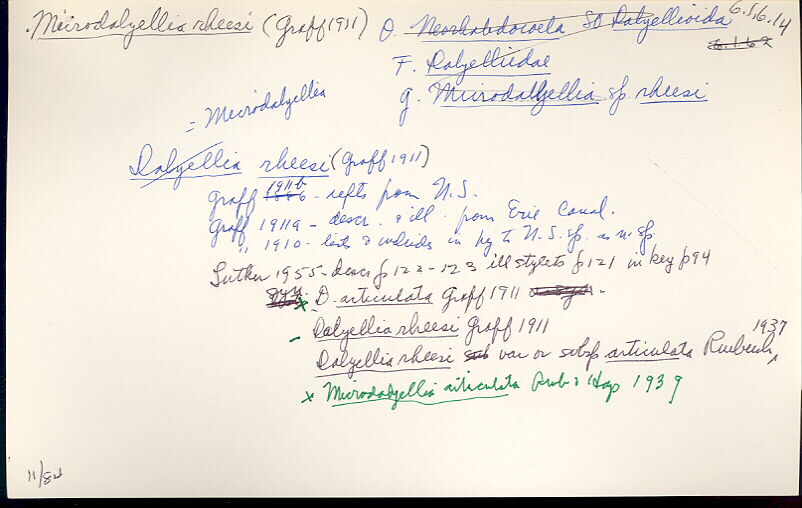 Microdalyellia rheesi (Graff 1911) O. Neorhabdocoela SO Dalyellioida 6.5.6.14
6.1.62
F. Dalyelliidae
g. Microdalyellia sp. rheesi
= Microdalyellia
Dalyellia rheesi (Graff 1911)
Graff 1911b - repts from U.S.
Graff 1911a - descr. & ill. from Erie Canal.
" 1910 - lists & includes in key to N.S. sp. as n. sp.
Luther 1955 - descr p 122-123 ill stylets p 121 in key p 94
x D. articulata Graff 1911
- Dalyellia rheesi Graff 1911
Dalyellia rheesi sub var or subsp articulata Ruebush 1937
x Microdalyellia articulata Rueb & Hay 1939
11/82